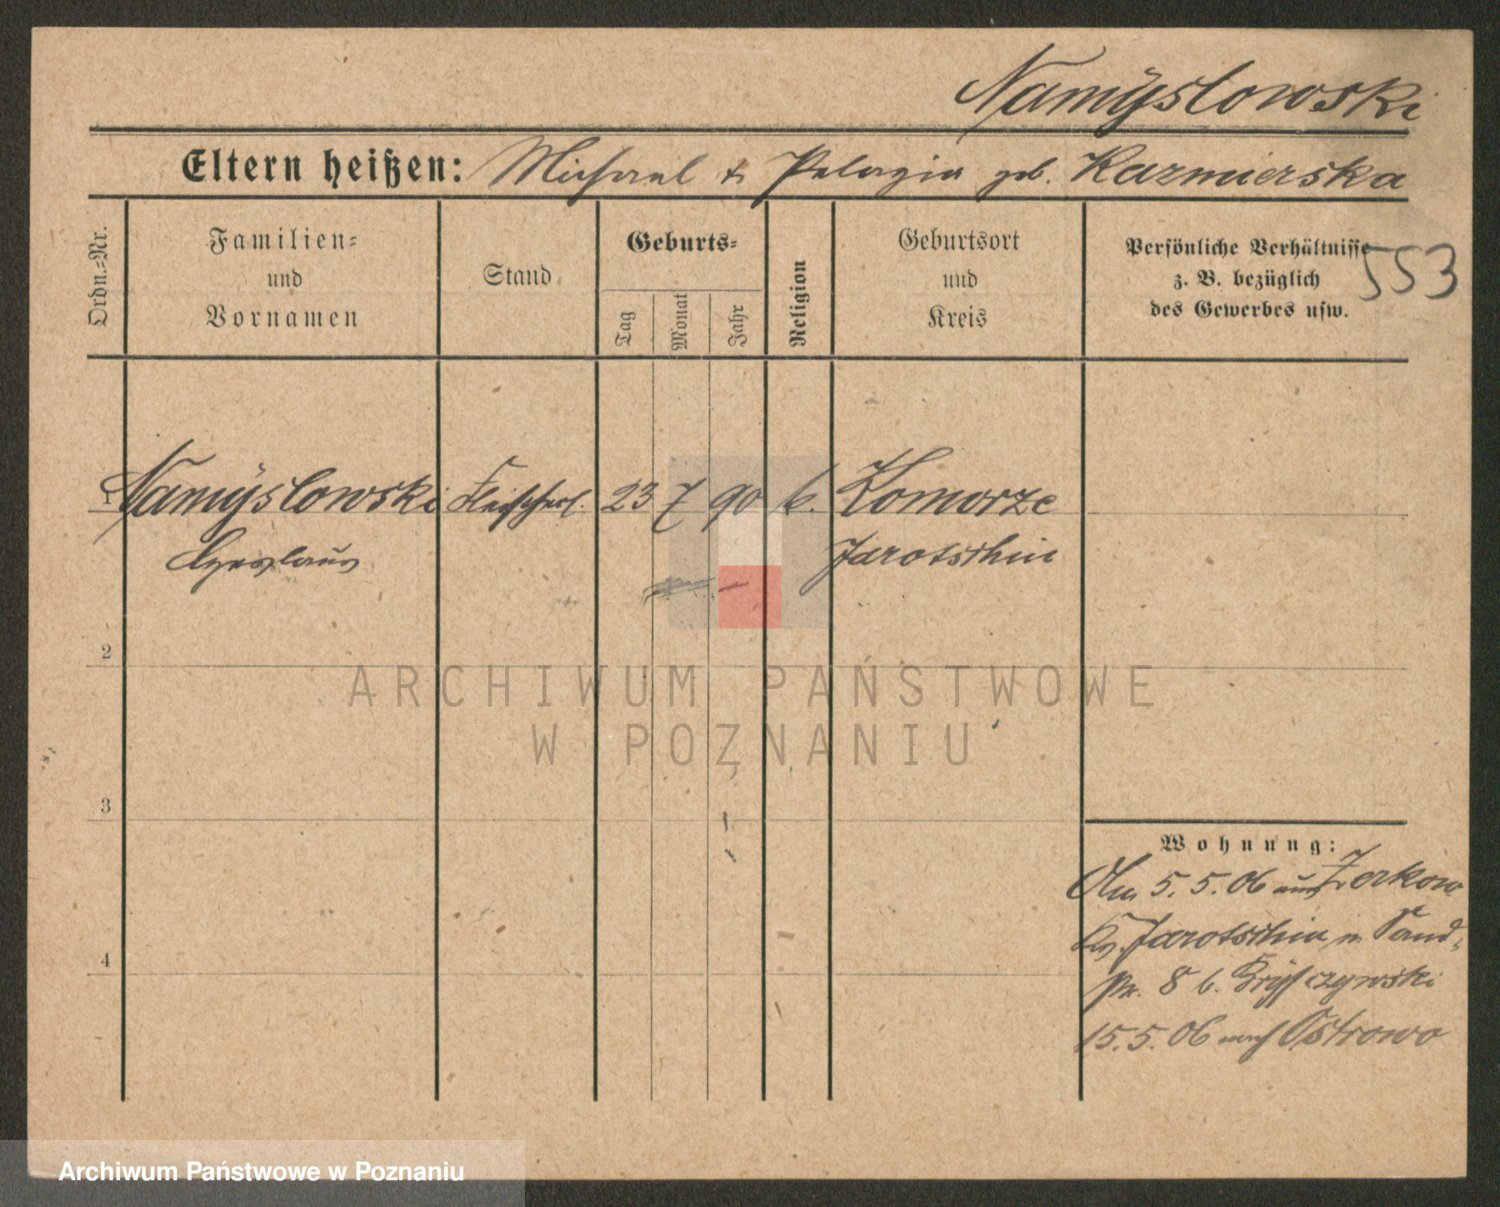 Namÿslowski
Eltern heißen: Michael & Pelagia geb. Kazmierska
Ordn.-Nr.
Familien-
und
Vornamen
Stand
Geburts-
Tag
Monat
Jahr
Religion
Geburtsort
und
Kreis
Persönliche Verhältnisse
z. B. bezüglich
des Gewerbes usw.
553
1 Namÿslowski Fleischerl. 23 7 90 k. Komorze
Czeslaus Jarotschin
2
ARCHIWUM PAŃSTWOWE
W POZNANIU
3
Wohnung:
5. 5. 06 aus Zerkow
Jarotschin n Sand-
str. 8 b.
15.5.06 nach Ostrowo
4
Archiwum Państwowe w Poznaniu